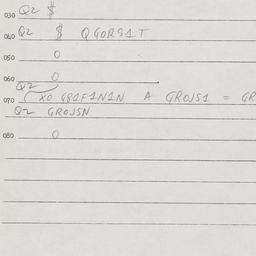 030 Q2 $
040 Q2 $ QGORS1T
050 0
060 0
Q2
070 (XO GS1F1N1N A GROJS1 = GR
Q2 GROJSN
080 0